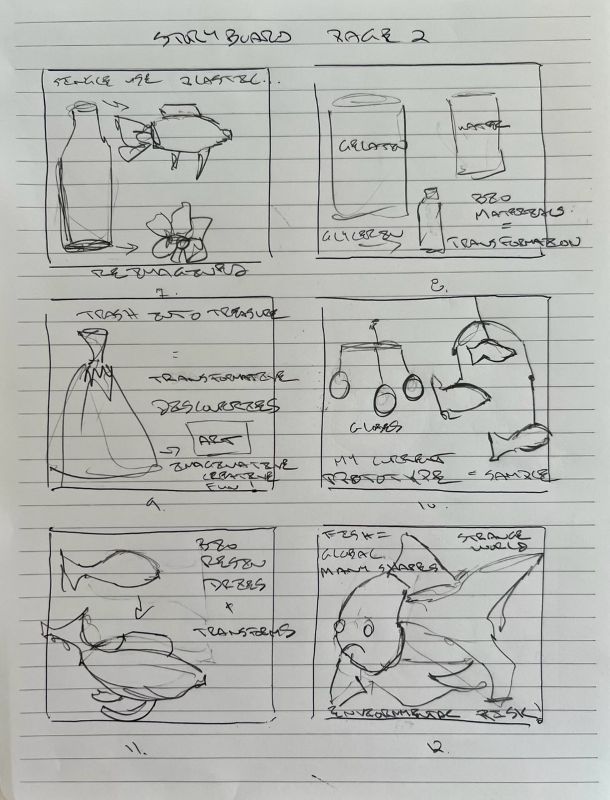 STORYBOARD PAGE 2
SINGLE USE PLASTIC...
REIMAGINED
7.
GELATIN
WATER
GLYCERIN
BIO
MATERIALS
=
TRANSFORMATION
8.
TRASH INTO TREASURE
=
TRANSFORMATIVE
DISCOVERIES
ART
IMAGINATIVE
CREATIVE
FUN!
9.
GLOBES
MY CURRENT
PROTOTYPE = SAMPLE
10.
BIO
RESIN
DRIES
+
TRANSFORMS
11.
FISH =
GLOBAL
MANY SHAPES
STRANGE
WORLD
ENVIRONMENTAL RISK!
12.